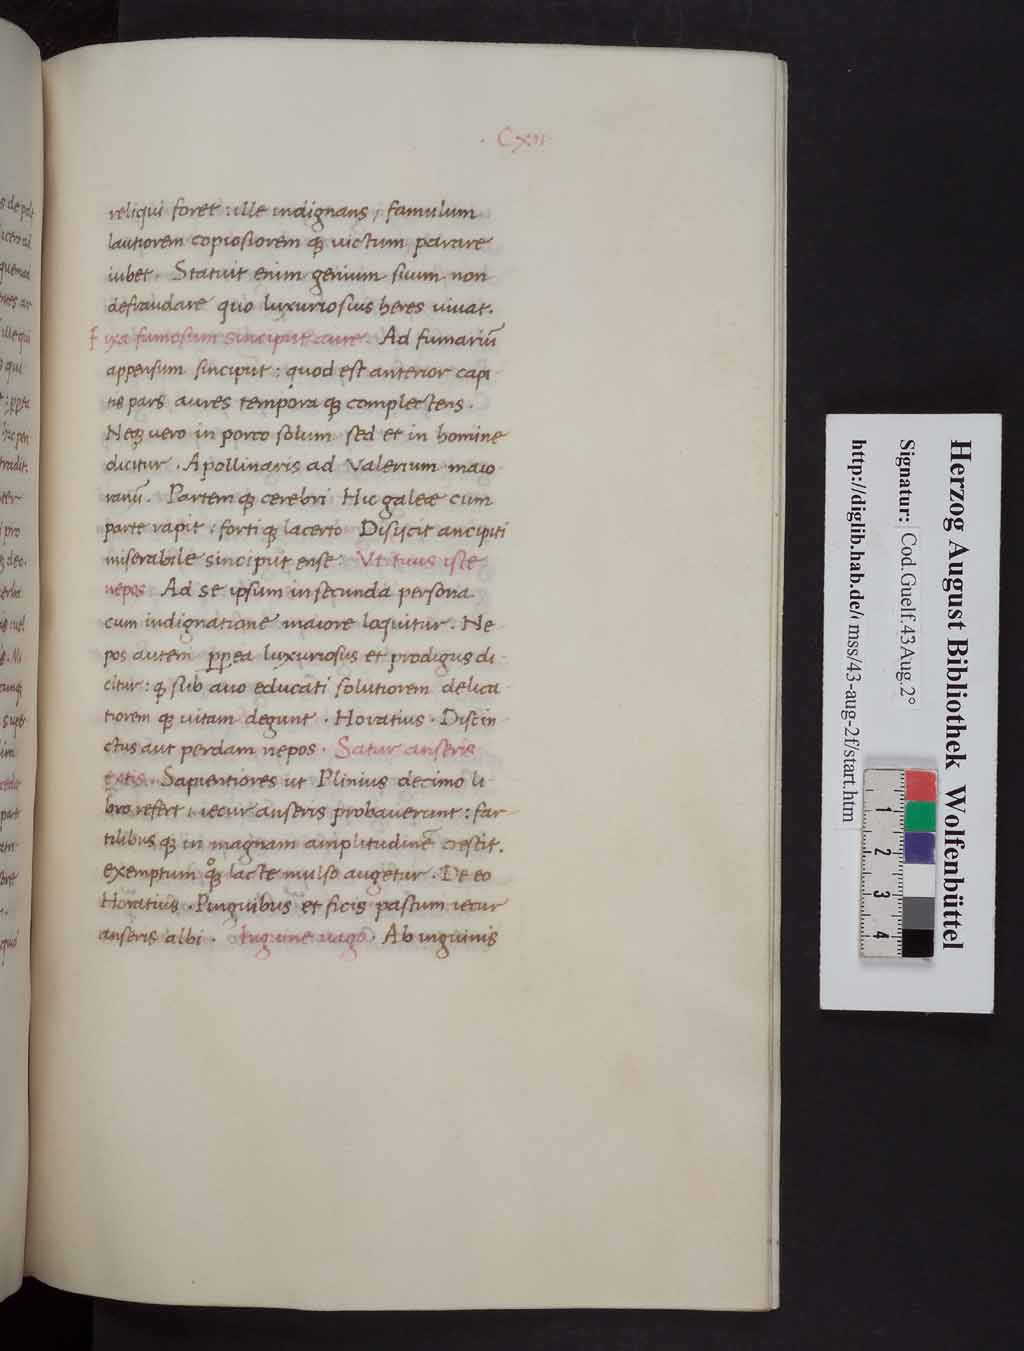 · Cxii
reliqui foret : ille indignans , famulum
lautiorem copiosiorem qȝ uictum parare
iubet . Statuit enim genium suum non
defraudare quo luxuriosius heres uiuat.
fixa fumosum sinciput aure. Ad fumariū
appensum sinciput : quod est anterior capi
tis pars aures tempora qȝ complectens .
Neqȝ uero in porco solum sed et in homine
dicitur . Apollinaris ad Valerium maio
ranū. Partem qȝ cerebri Hic galeæ cum
parte rapit : forti qȝ lacerto Disijcit ancipiti
miserabile sinciput ense . Vt tuus iste
nepos Ad se ipsum in secunda persona
cum indignatione maiore loquitur . Ne
pos autem ppea luxuriosus et prodigus di
citur : q sub auo educati solutiorem delica
tiorem qȝ uitam degunt . Horatius . Discin
ctus aut perdam nepos . Satur anseris
extis . Sapientiores ut Plinius decimo li
bro refert iecur anseris probauerunt : far
tilibus qȝ in magnam amplitudinē crescit.
exemptum qȝ lacte mulso augetur . De eo
Horatius . Pinguibus et ficis pastum iecur
anseris albi . Inguine uago . Ab inguinis
Herzog August Bibliothek Wolfenbüttel
Signatur: Cod.Guelf.43 Aug.2°
http://diglib.hab.de/ mss/43-aug-2f/start.htm
1 2 3 4